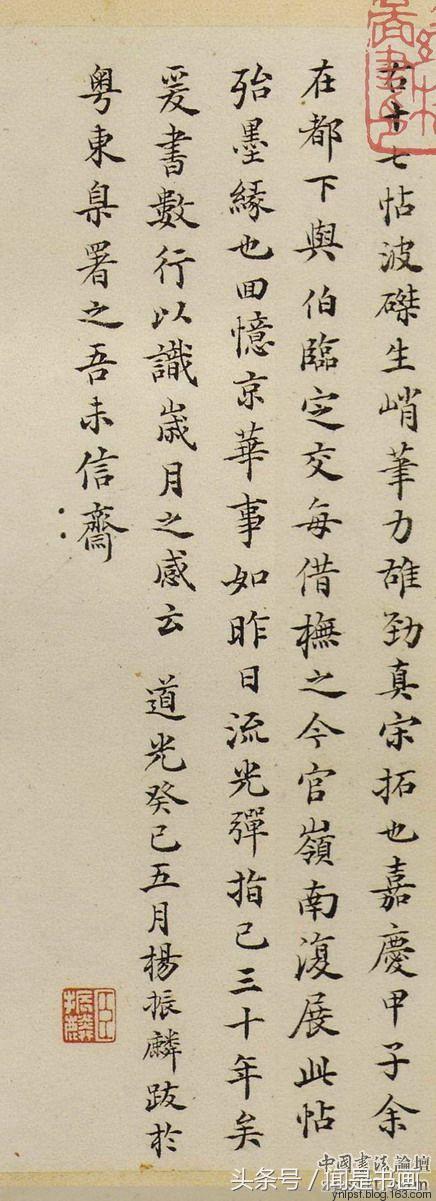 右十七帖波磔生峭筆力雄勁真宋拓也嘉慶甲子余
在都下與伯臨定交每借橅之今官嶺南復展此帖
殆墨緣也回憶京華事如昨日流光彈指已三十年矣
爰書數行以識歲月之感云 道光癸巳五月楊振麟跋於
粵東臬署之吾未信齋
中國書法論壇
ynlpsf.blog.163.com
头条号 / 闻是书画